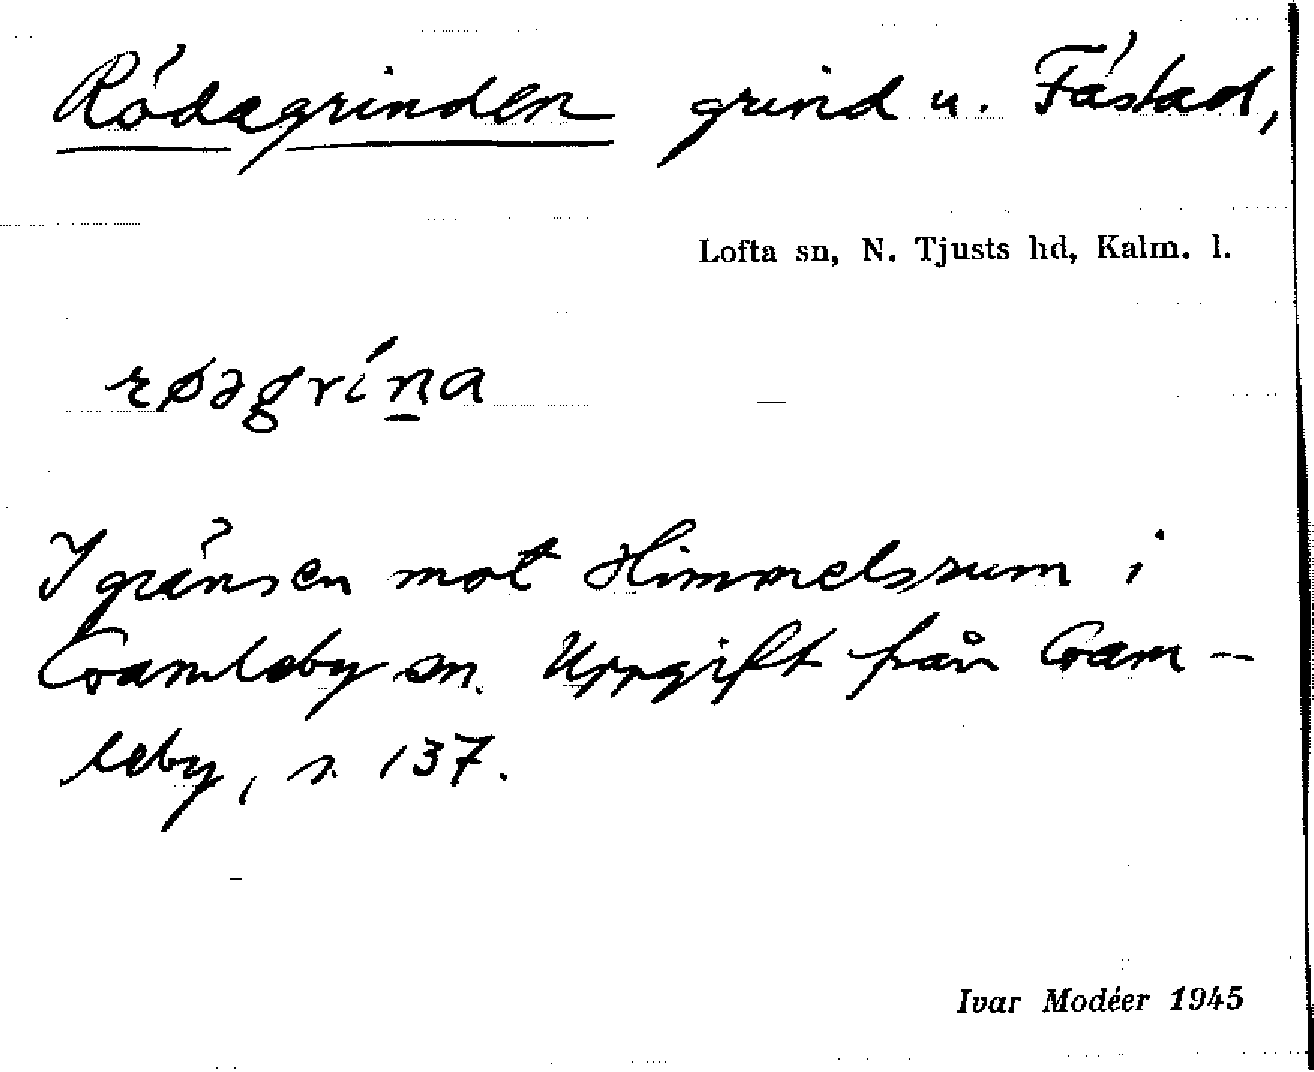 Rödagrinden grind u. Fästad,
Lofta sn, N. Tjusts hd, Kalm. l.
røəgrína
I gränsen mot Himmelsrum i
Gamleby sn. Uppgift från Gam-
leby, s. 137.
Ivar Modéer 1945